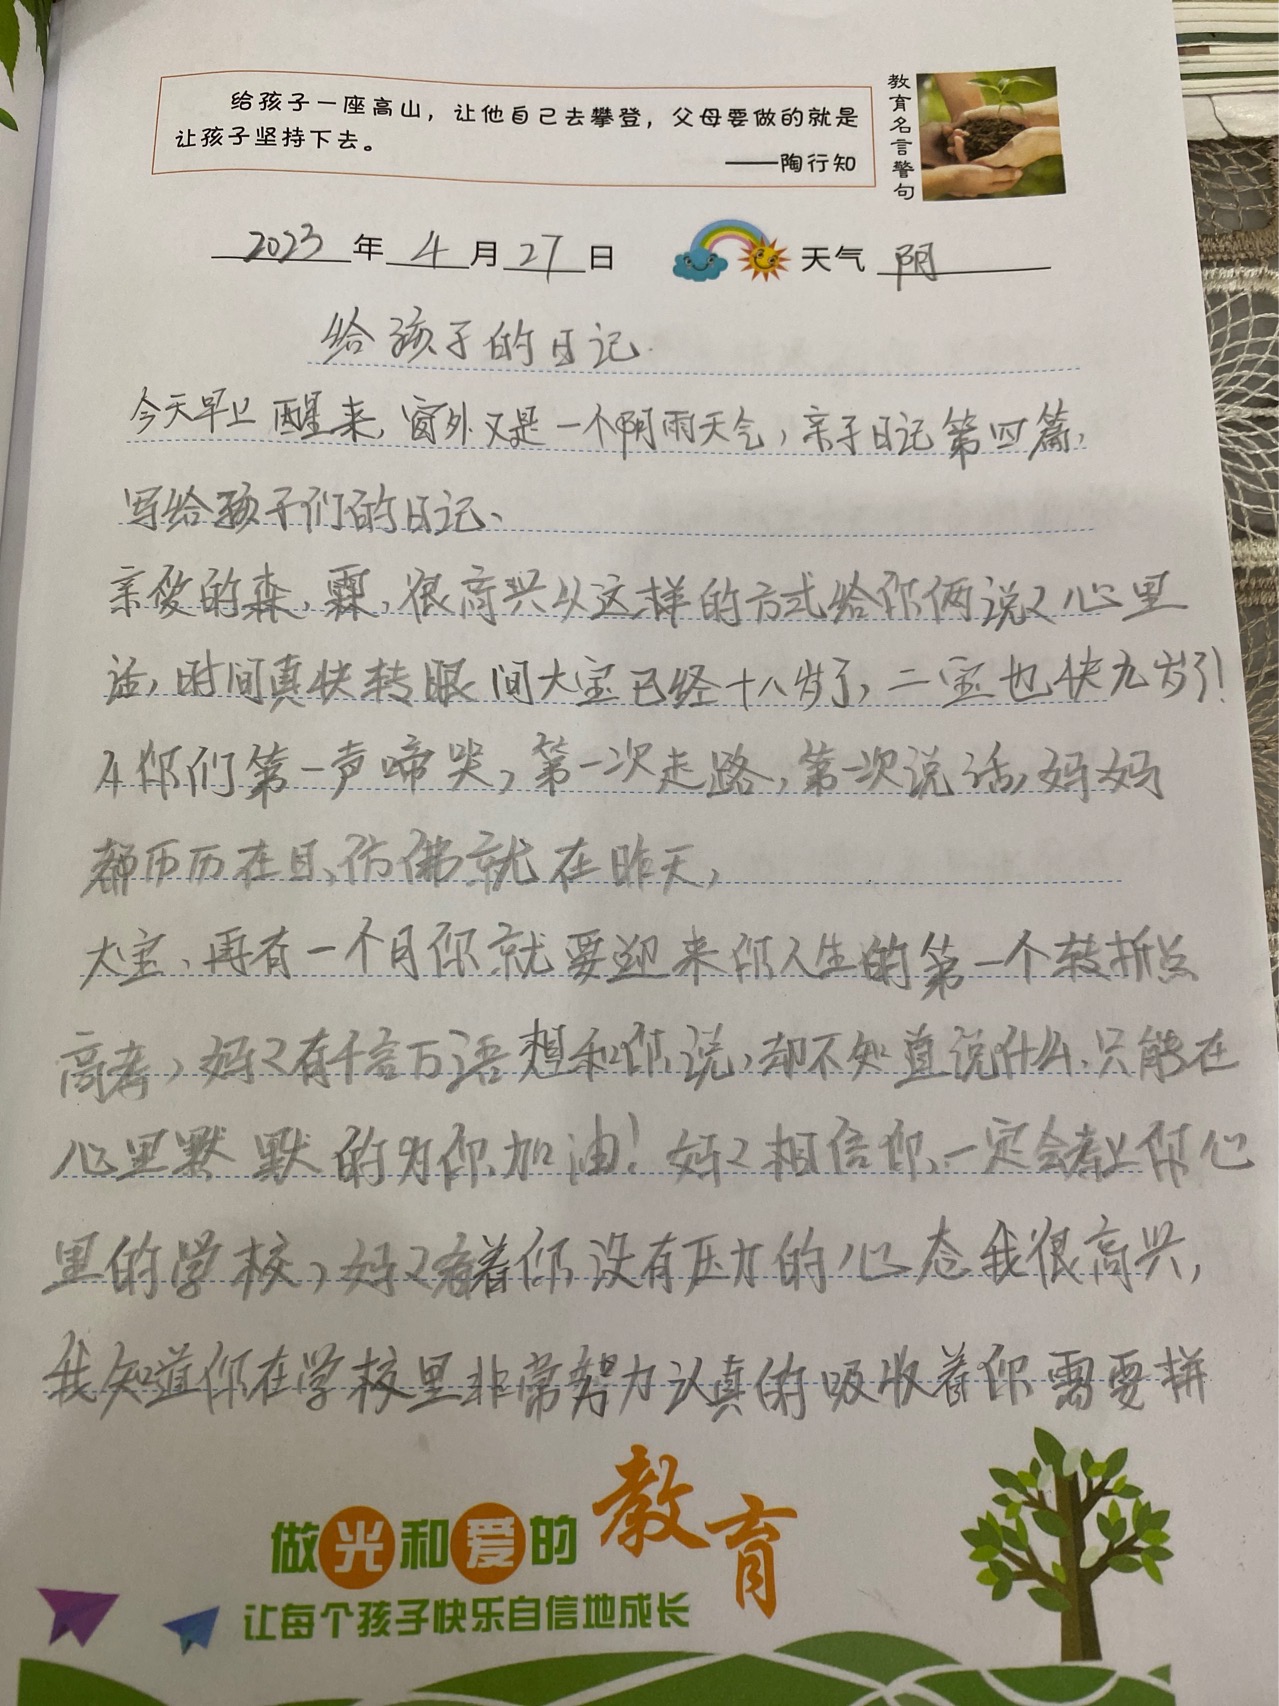 给孩子一座高山，让他自己去攀登，父母要做的就是
让孩子坚持下去。
——陶行知
教育名言警句
2023年4月27日 天气 阴
给孩子的日记
今天早上醒来，窗外又是一个阴雨天气，亲子日记第四篇，
写给孩子们的日记、
亲爱的森、霖，很高兴以这样的方式给你俩说々心里
话，时间真快转眼间大宝已经十八岁了，二宝也快九岁了！
从你们第一声啼哭，第一次走路，第一次说话，妈妈
都历历在目、仿佛就在昨天，
大宝、再有一个月你就要迎来你人生的第一个转折点
高考，妈々有千言万语想和你说，却不知道说什么，只能在
心里默默的为你加油！妈々相信你、一定会考上你心
里的学校，妈々看着你没有压力的心态我很高兴，
我知道你在学校里非常努力认真的吸收着你需要拼
做光和爱的教育
让每个孩子快乐自信地成长